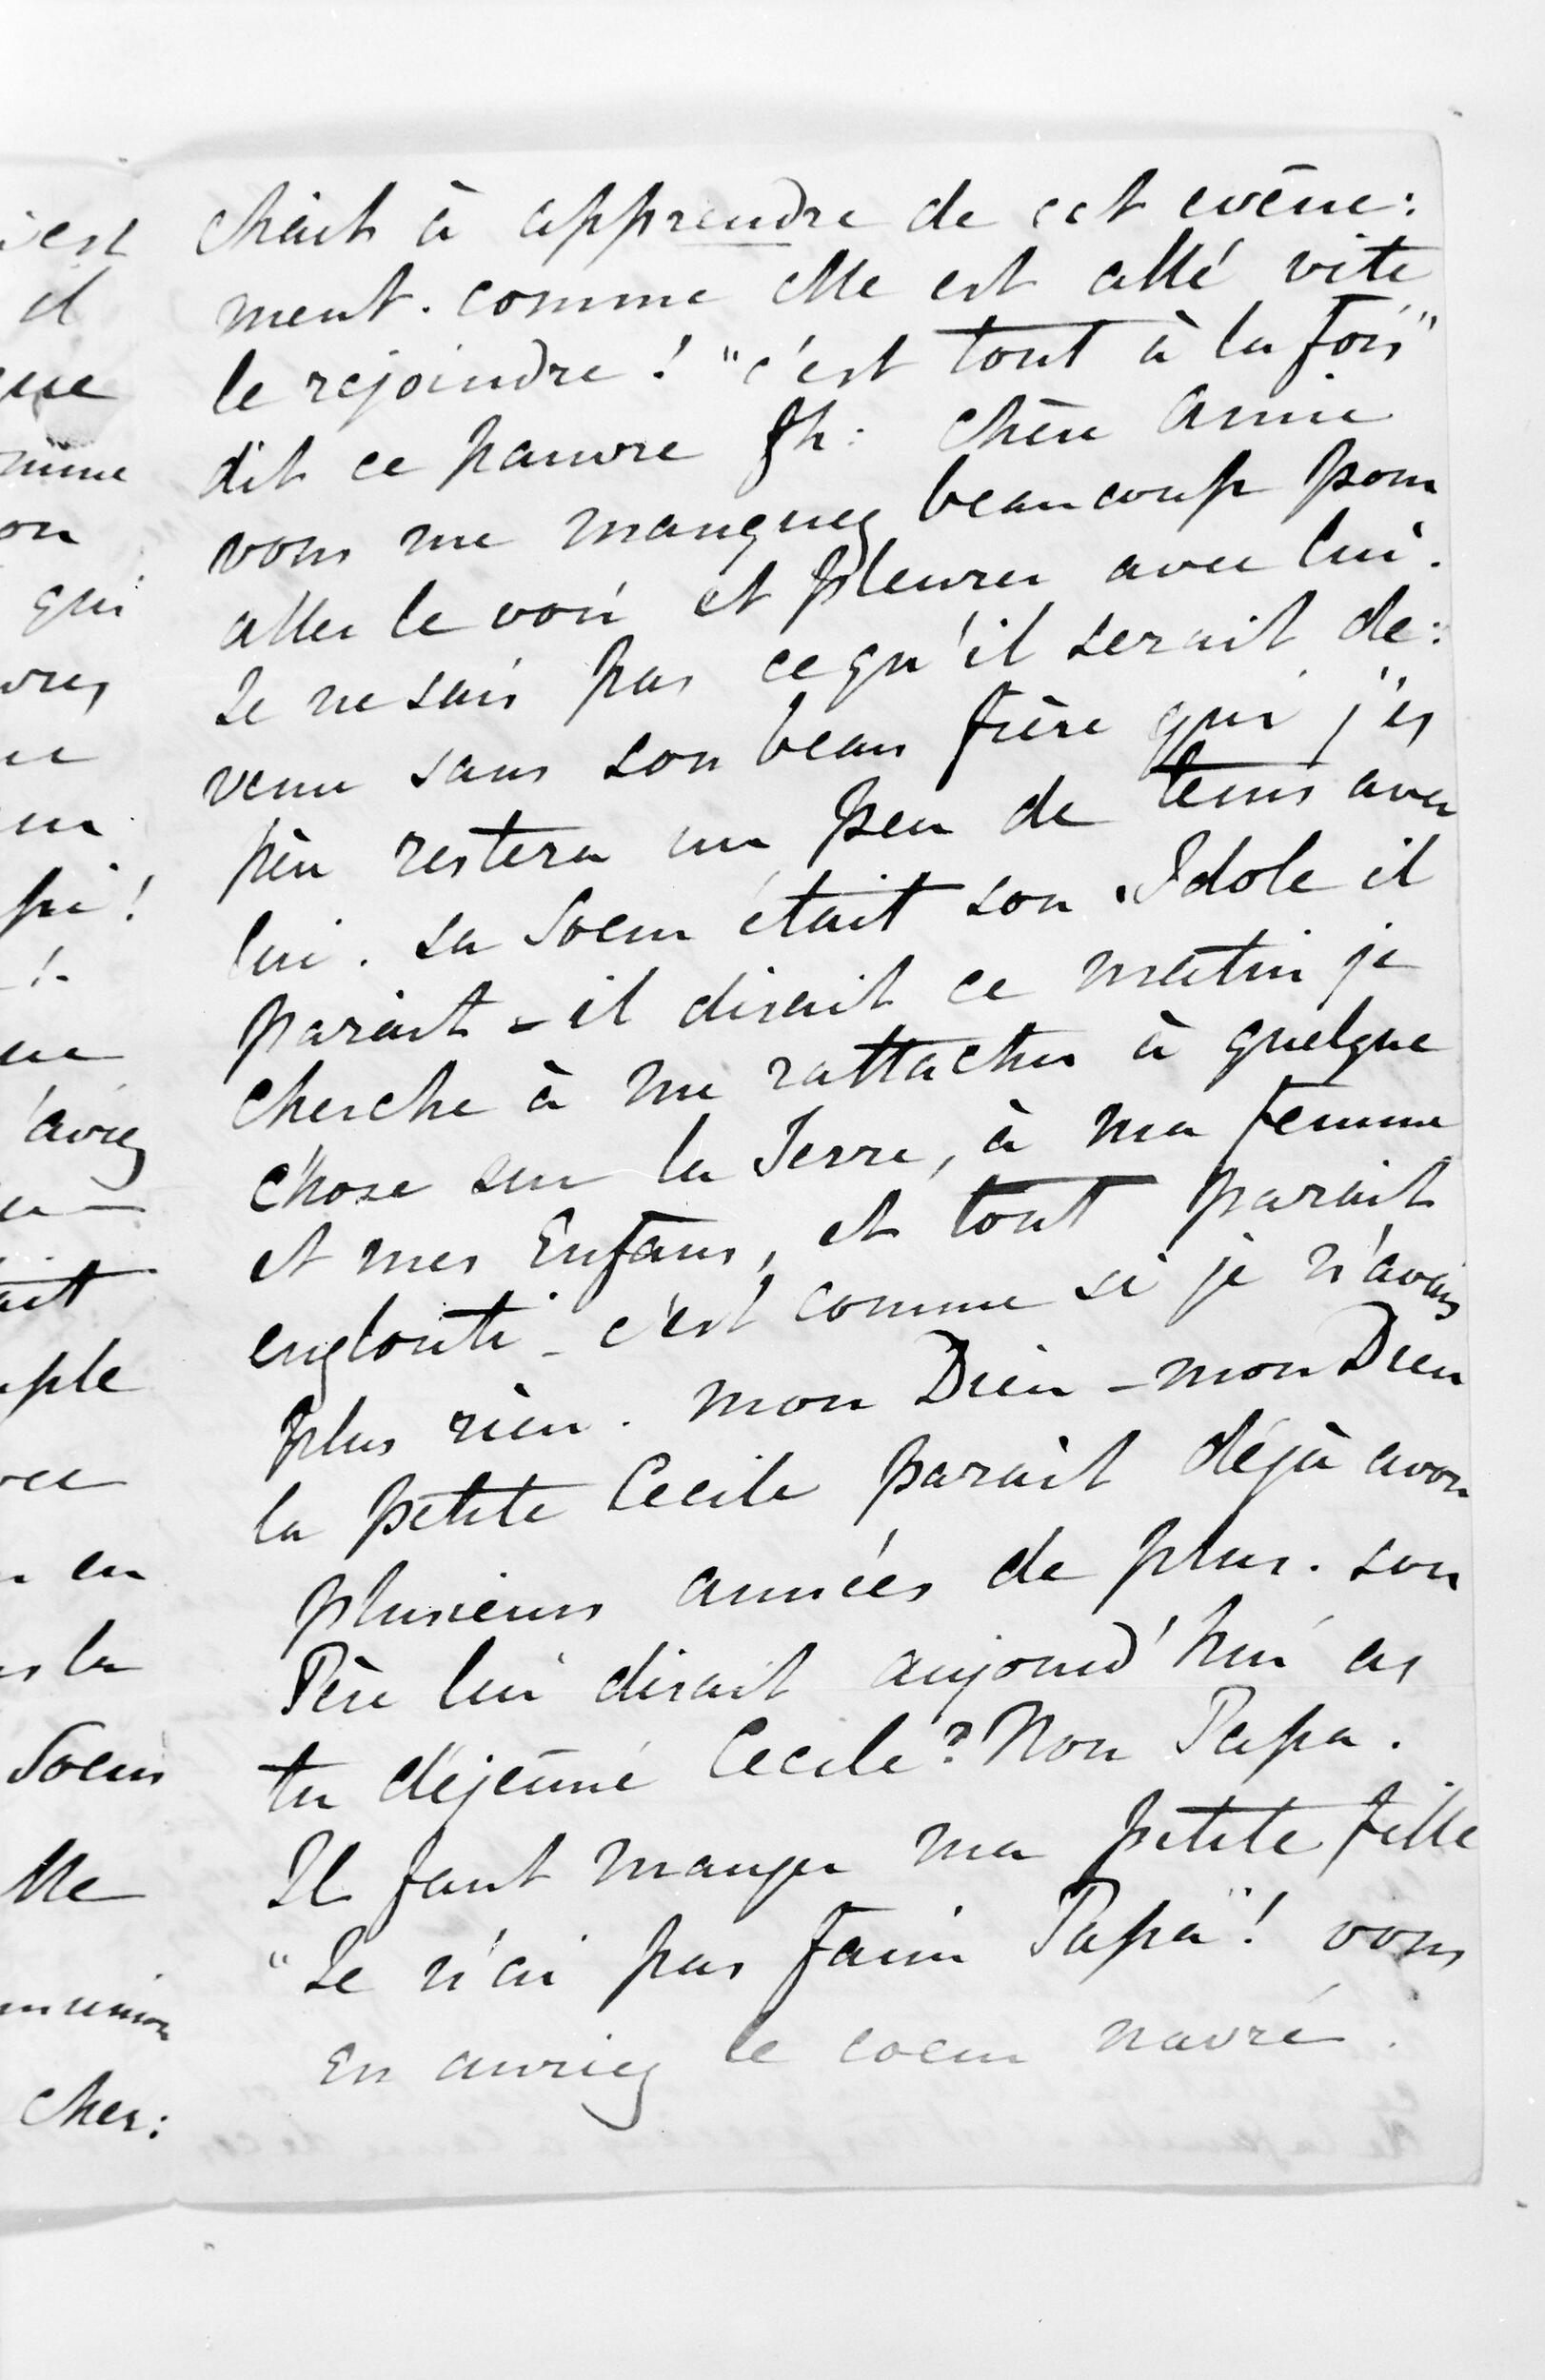 chait à apprendre de cet evène:
ment. comme elle est allé vite
le rejoindre! "c'est tout à la fois"
dit ce pauvre fh: chère amie
vous me manquez beaucoup pour
aller le voir et pleurer avec lui.
Je ne sais pas ce qu'il serait de:
venu sans son beau frère qui j'es
père restera un peu de tems avec
lui. sa Soeur était son Idole il
parait - il disait ce matin je
cherche à me rattacher à quelque
chose sur la Terre, à ma femme
et mes Enfans, et tout parait
englouti - c'est comme si je n'avais
plus rien. mon Dieu - mon Dieu
la petite Cecile parait déjà avoir
plusieurs années de plus. son
Père lui disait aujourd'hui as
tu déjeuné Cecile? Non Papa.
Il faut manger ma petite fille
"Je n'ai pas faim Papa"! vous
En auriez le coeur navré.